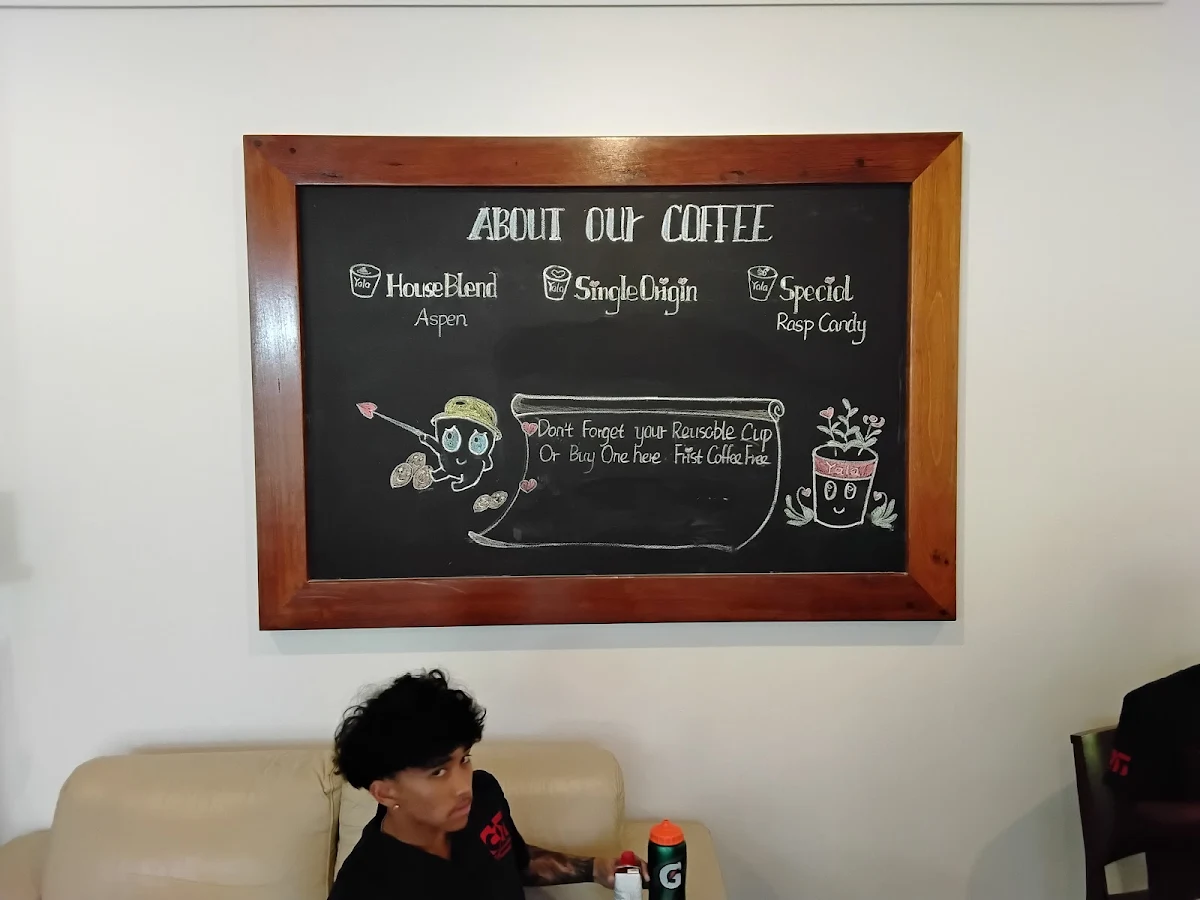 ABOUT OUr COFFEE
Yala House Blend
Aspen
Yala Single Origin
Yala Special
Rasp Candy
Don't Forget your Reusable Cup
Or Buy One here Frist Coffee Free
Yala
G